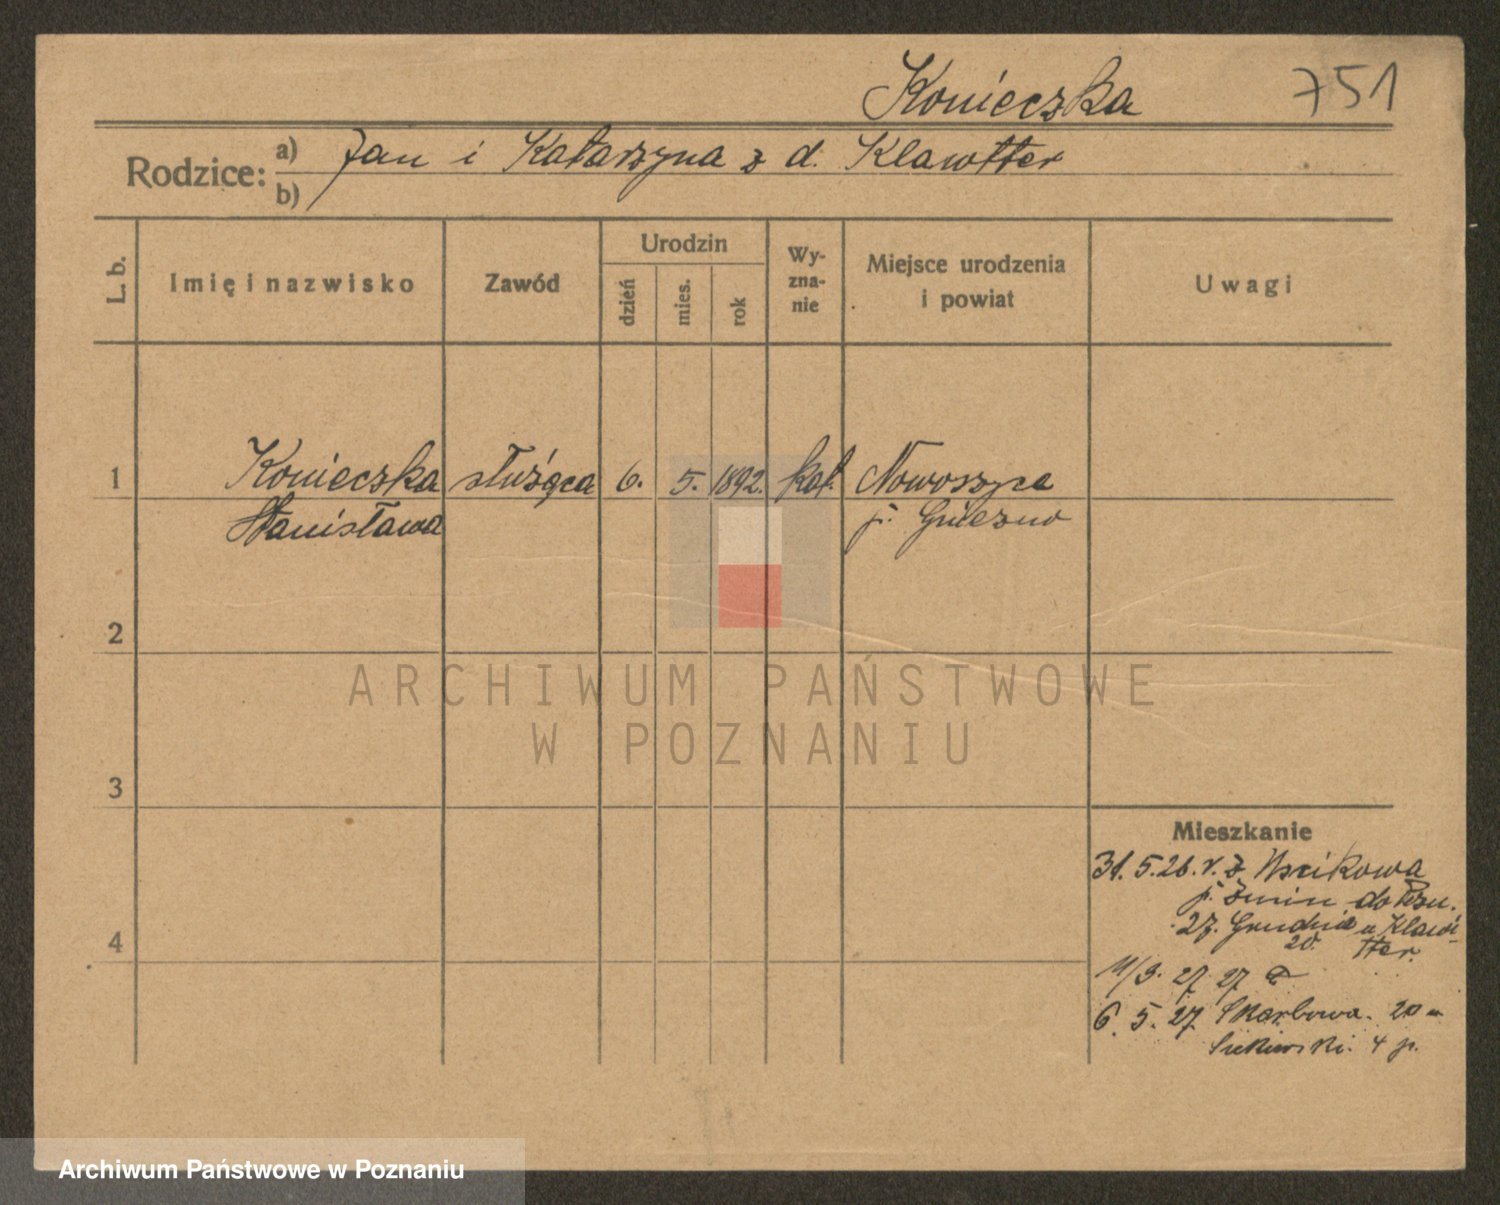 Konieczka 751
Rodzice: a) Jan i Katarzyna z d. Klawtter
b)
L. b.
Imię i nazwisko
Zawód
Urodzin
dzień
mies.
rok
Wy-
zna-
nie
Miejsce urodzenia
i powiat
Uwagi
1 Konieczka służąca 6. 5. 1892. kat. Nowoszyce
Stanisława p. Gniezno
2
ARCHIWUM PAŃSTWOWE
W POZNANIU
3
Mieszkanie
31. 5. 26. v. z
p. Żnin do Pozn.
4
27. Grudnia u Klawi-
20. tter.
11/3. 27 27
6. 5. 27 Skarbowa. 20
4 p.
Archiwum Państwowe w Poznaniu